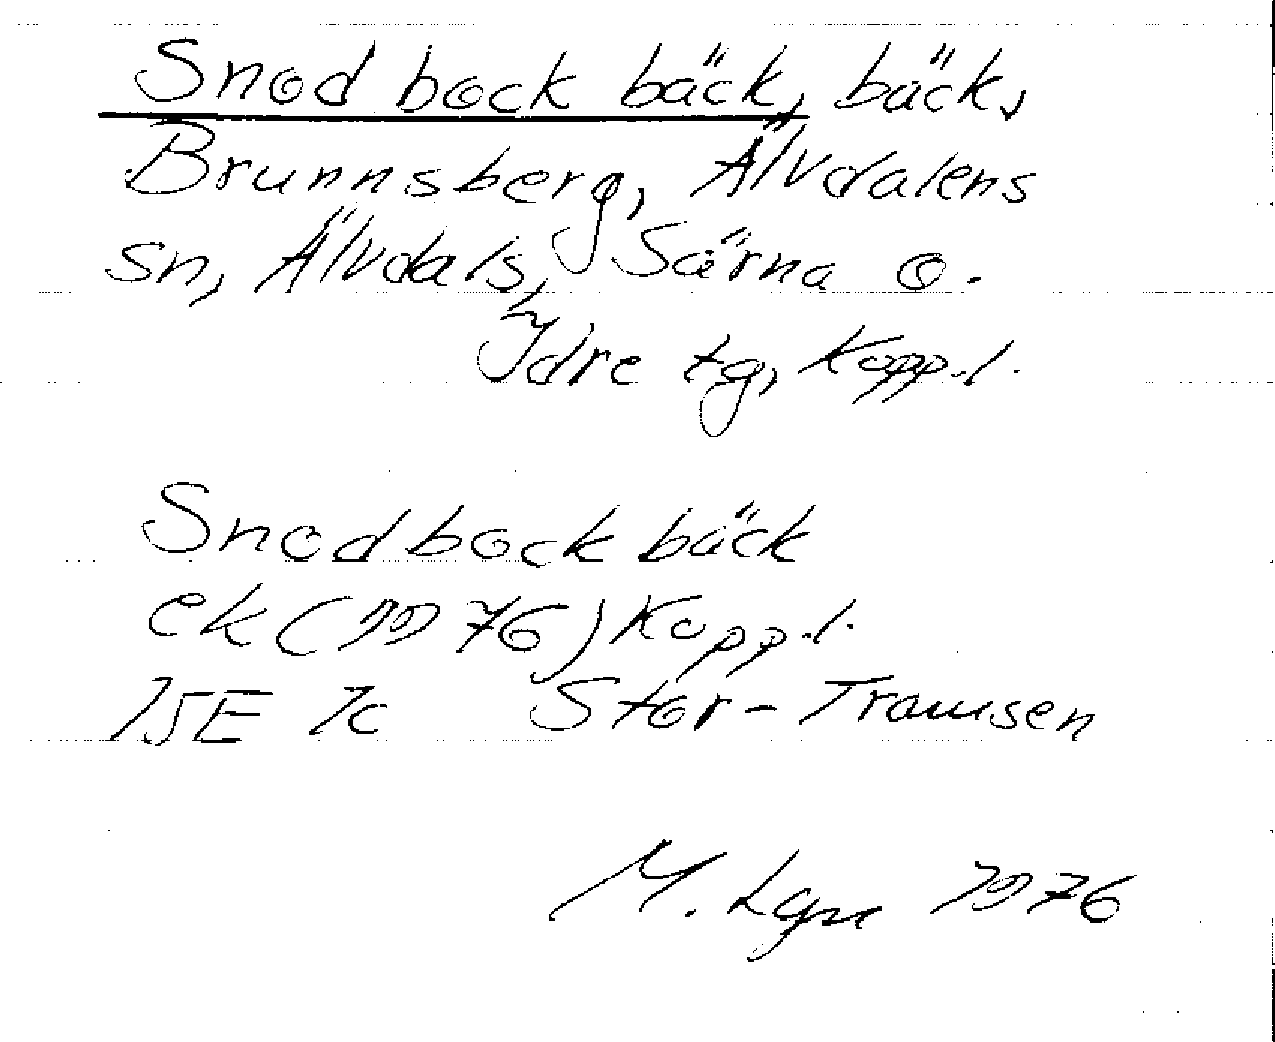 Snodbockbäck, bäck,
Brunnsberg, Älvdalens
sn, Älvdals, Särna o.
Idre tg, Kopp.l.
Snodbockbäck
ek (1976) Kopp.l.
15E 1c Stor-Tramsen
M. Lgn 1976